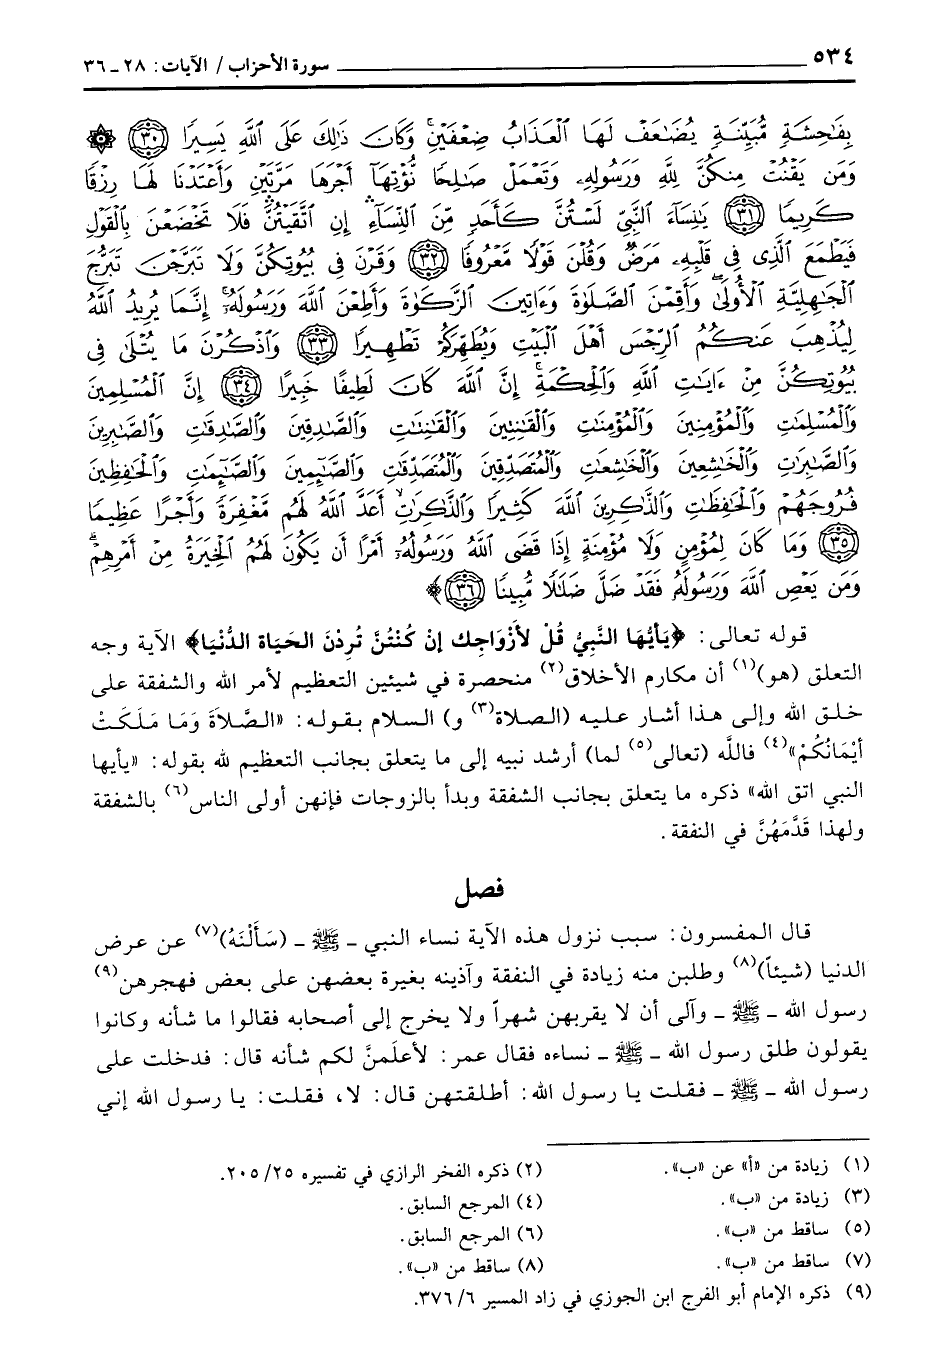 ٥٣٤ سورة الأحزاب / الآيات: ٢٨ ـ ٣٦
بِفَاحِشَةٍ مُّبَيِّنَةٍ يُضَاعَفْ لَهَا الْعَذَابُ ضِعْفَيْنِ وَكَانَ ذَٰلِكَ عَلَى اللَّهِ يَسِيرًا ﴿٣٠﴾ ۞
وَمَن يَقْنُتْ مِنكُنَّ لِلَّهِ وَرَسُولِهِ وَتَعْمَلْ صَالِحًا نُّؤْتِهَا أَجْرَهَا مَرَّتَيْنِ وَأَعْتَدْنَا لَهَا رِزْقًا
كَرِيمًا ﴿٣١﴾ يَا نِسَاءَ النَّبِيِّ لَسْتُنَّ كَأَحَدٍ مِّنَ النِّسَاءِ إِنِ اتَّقَيْتُنَّ فَلَا تَخْضَعْنَ بِالْقَوْلِ
فَيَطْمَعَ الَّذِي فِي قَلْبِهِ مَرَضٌ وَقُلْنَ قَوْلًا مَّعْرُوفًا ﴿٣٢﴾ وَقَرْنَ فِي بُيُوتِكُنَّ وَلَا تَبَرَّجْنَ تَبَرُّجَ
الْجَاهِلِيَّةِ الْأُولَىٰ وَأَقِمْنَ الصَّلَوٰةَ وَءَاتِينَ الزَّكَوٰةَ وَأَطِعْنَ اللَّهَ وَرَسُولَهُ إِنَّمَا يُرِيدُ اللَّهُ
لِيُذْهِبَ عَنكُمُ الرِّجْسَ أَهْلَ الْبَيْتِ وَيُطَهِّرَكُمْ تَطْهِيرًا ﴿٣٣﴾ وَاذْكُرْنَ مَا يُتْلَىٰ فِي
بُيُوتِكُنَّ مِنْ ءَايَاتِ اللَّهِ وَالْحِكْمَةِ إِنَّ اللَّهَ كَانَ لَطِيفًا خَبِيرًا ﴿٣٤﴾ إِنَّ الْمُسْلِمِينَ
وَالْمُسْلِمَاتِ وَالْمُؤْمِنِينَ وَالْمُؤْمِنَاتِ وَالْقَانِتِينَ وَالْقَانِتَاتِ وَالصَّادِقِينَ وَالصَّادِقَاتِ وَالصَّابِرِينَ
وَالصَّابِرَاتِ وَالْخَاشِعِينَ وَالْخَاشِعَاتِ وَالْمُتَصَدِّقِينَ وَالْمُتَصَدِّقَاتِ وَالصَّائِمِينَ وَالصَّائِمَاتِ وَالْحَافِظِينَ
فُرُوجَهُمْ وَالْحَافِظَاتِ وَالذَّاكِرِينَ اللَّهَ كَثِيرًا وَالذَّاكِرَاتِ أَعَدَّ اللَّهُ لَهُم مَّغْفِرَةً وَأَجْرًا عَظِيمًا
﴿٣٥﴾ وَمَا كَانَ لِمُؤْمِنٍ وَلَا مُؤْمِنَةٍ إِذَا قَضَى اللَّهُ وَرَسُولُهُ أَمْرًا أَن يَكُونَ لَهُمُ الْخِيَرَةُ مِنْ أَمْرِهِمْ
وَمَن يَعْصِ اللَّهَ وَرَسُولَهُ فَقَدْ ضَلَّ ضَلَالًا مُّبِينًا ﴿٣٦﴾﴾
قوله تعالى: ﴿يَأيُّهَا النَّبِيُّ قُلْ لأَزْوَاجِكَ إنْ كُنْتُنَّ تُرِدْنَ الحَيَاةَ الدُّنْيَا﴾ الآية وجه
التعلق (هو)(١) أن مكارم الأخلاق(٢) منحصرة في شيئين التعظيم لأمر الله والشفقة على
خلق الله وإلى هذا أشار عليه (الصلاة(٣) و) السلام بقوله: «الصَّلاَةَ وَمَا مَلَكَتْ
أَيْمَانُكُمْ»(٤) فاللَّه (تعالى(٥) لما) أرشد نبيه إلى ما يتعلق بجانب التعظيم لله بقوله: «يأيها
النبي اتق الله» ذكره ما يتعلق بجانب الشفقة وبدأ بالزوجات فإنهن أولى الناس(٦) بالشفقة
ولهذا قَدَّمَهُنَّ في النفقة.
فصل
قال المفسرون: سبب نزول هذه الآية نساء النبي ـ ﷺ ـ (سَأَلْنَهُ)(٧) عن عرض
الدنيا (شيئاً)(٨) وطلبن منه زيادة في النفقة وآذينه بغيرة بعضهن على بعض فهجرهن(٩)
رسول الله ـ ﷺ ـ وآلى أن لا يقربهن شهراً ولا يخرج إلى أصحابه فقالوا ما شأنه وكانوا
يقولون طلق رسول الله ـ ﷺ ـ نساءه فقال عمر: لأعلَمنَّ لكم شأنه قال: فدخلت على
رسول الله ـ ﷺ ـ فقلت يا رسول الله: أطلقتهن قال: لا، فقلت: يا رسول الله إني
(١) زيادة من «أ» عن «ب». (٢) ذكره الفخر الرازي في تفسيره ٢٥/ ٢٠٥.
(٣) زيادة من «ب». (٤) المرجع السابق.
(٥) ساقط من «ب». (٦) المرجع السابق.
(٧) ساقط من «ب». (٨) ساقط من «ب».
(٩) ذكره الإمام أبو الفرج ابن الجوزي في زاد المسير ٦/ ٣٧٦.